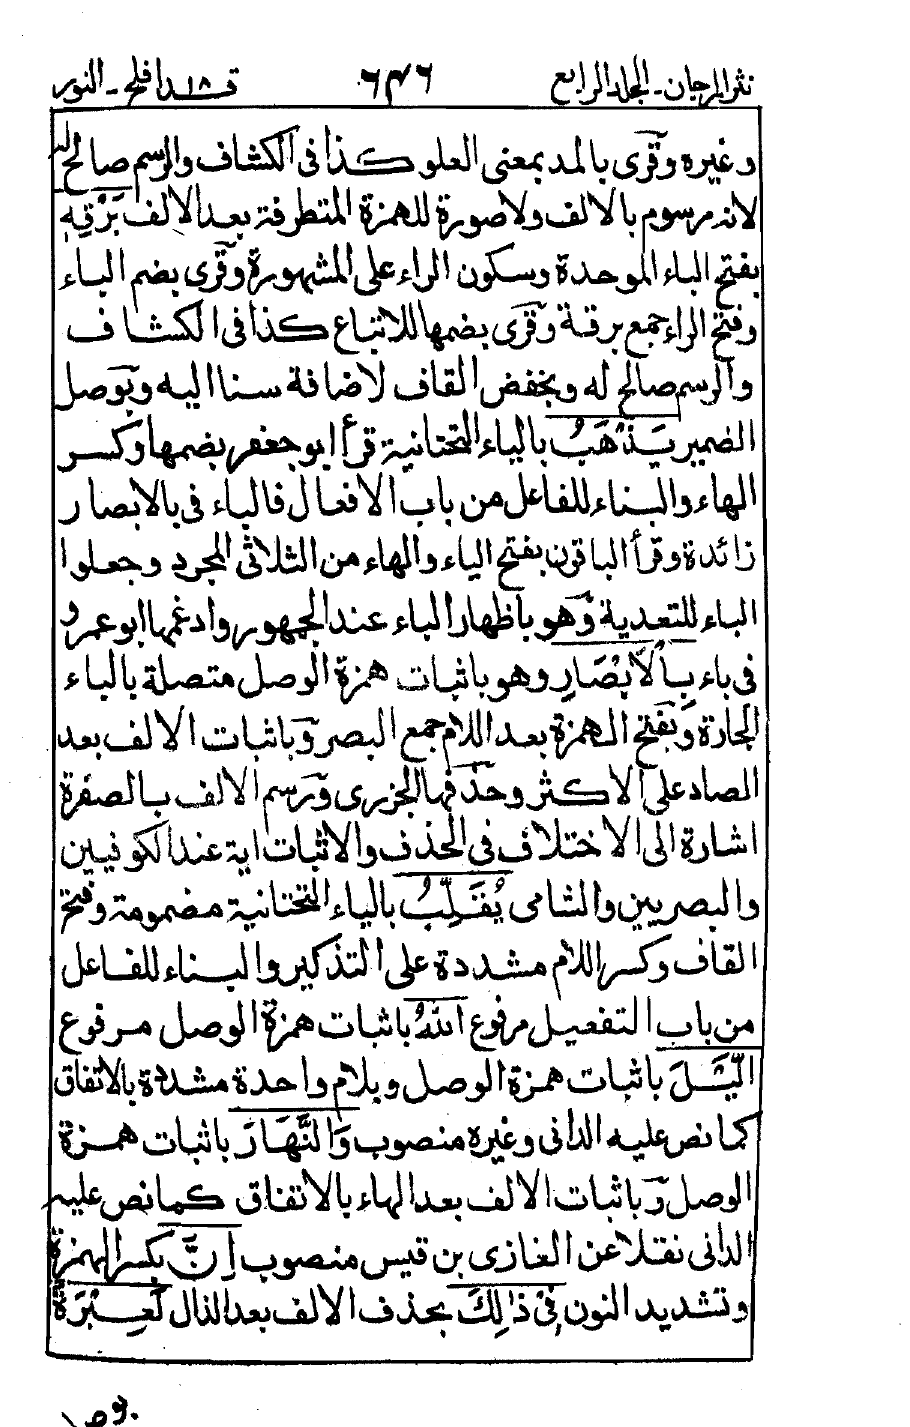 نثر المرجان - المجلد الرابع ٦٤٦ قد افلح ١٨ - النور
وغيره وقرى بالمد بمعنى العلو كذا فى الكشاف والرسم صالح له
لانه مرسوم بالالف ولا صورة للهمزة المتطرفة بعد الالف بَرْقِهٖ
بفتح الباء الموحدة وسكون الراء على المشهورة وقرى بضم الباء
وفتح الراء جمع برقة وقرى بضمها للاتباع كذا فى الكشاف
والرسم صالح له وبخفض القاف لاضافة سنا اليه وبوصل
الضمير يَذْهَبُ بالياء التحتانية قرأ ابو جعفر بضمها وكسر
الهاء والبناء للفاعل من باب الافعال فالباء فى بالابصار
زائدة وقرأ الباقون بفتح الياء والهاء من الثلاثى المجرد وجعلوا
الباء للتعدية وهو باظهار الباء عند الجمهور وادغمها ابو عمرو
فى باء بِالْاَبْصَارِ وهو باثبات همزة الوصل متصلة بالباء
الجارة وبفتح الهمزة بعد اللام جمع البصر وباثبات الالف بعد
الصاد على الاكثر وحذفها الجزرى ورسم الالف بالصفرة
اشارة الى الاختلاف فى الحذف والاثبات اية عند الكوفيين
والبصريين والشامى يُقَلِّبُ بالياء التحتانية مضمومة وفتح
القاف وكسر اللام مشددة على التذكير والبناء للفاعل
من باب التفعيل مرفوع اللهُ باثبات همزة الوصل مرفوع
الَّيْلَ باثبات همزة الوصل وبلام واحدة مشددة بالاتفاق
كما نص عليه الدانى وغيره منصوب وَالنَّهَارَ باثبات همزة
الوصل وباثبات الالف بعد الهاء بالاتفاق كما نص عليه
الدانى نقلا عن الغازى بن قيس منصوب اِنَّ بكسر الهمزة
وتشديد النون فِىْ ذٰلِكَ بحذف الالف بعد الذال لَعِبْرَةً